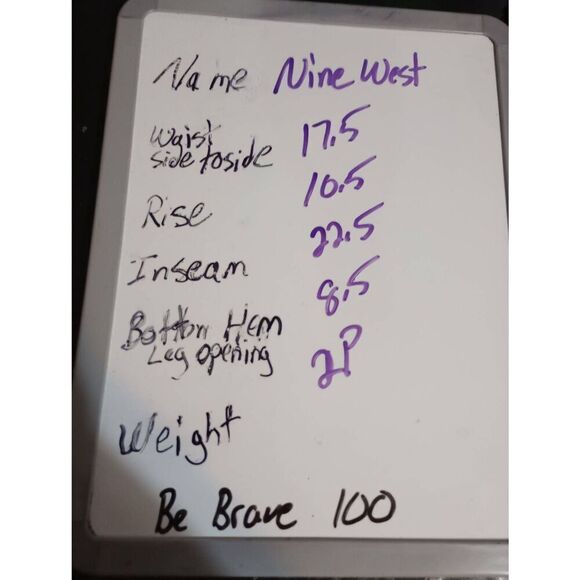 Name Nine West
Waist
side to side 17.5
Rise 10.5
Inseam 22.5
Bottom Hem
Leg opening 8.5
Weight
Be Brave 100